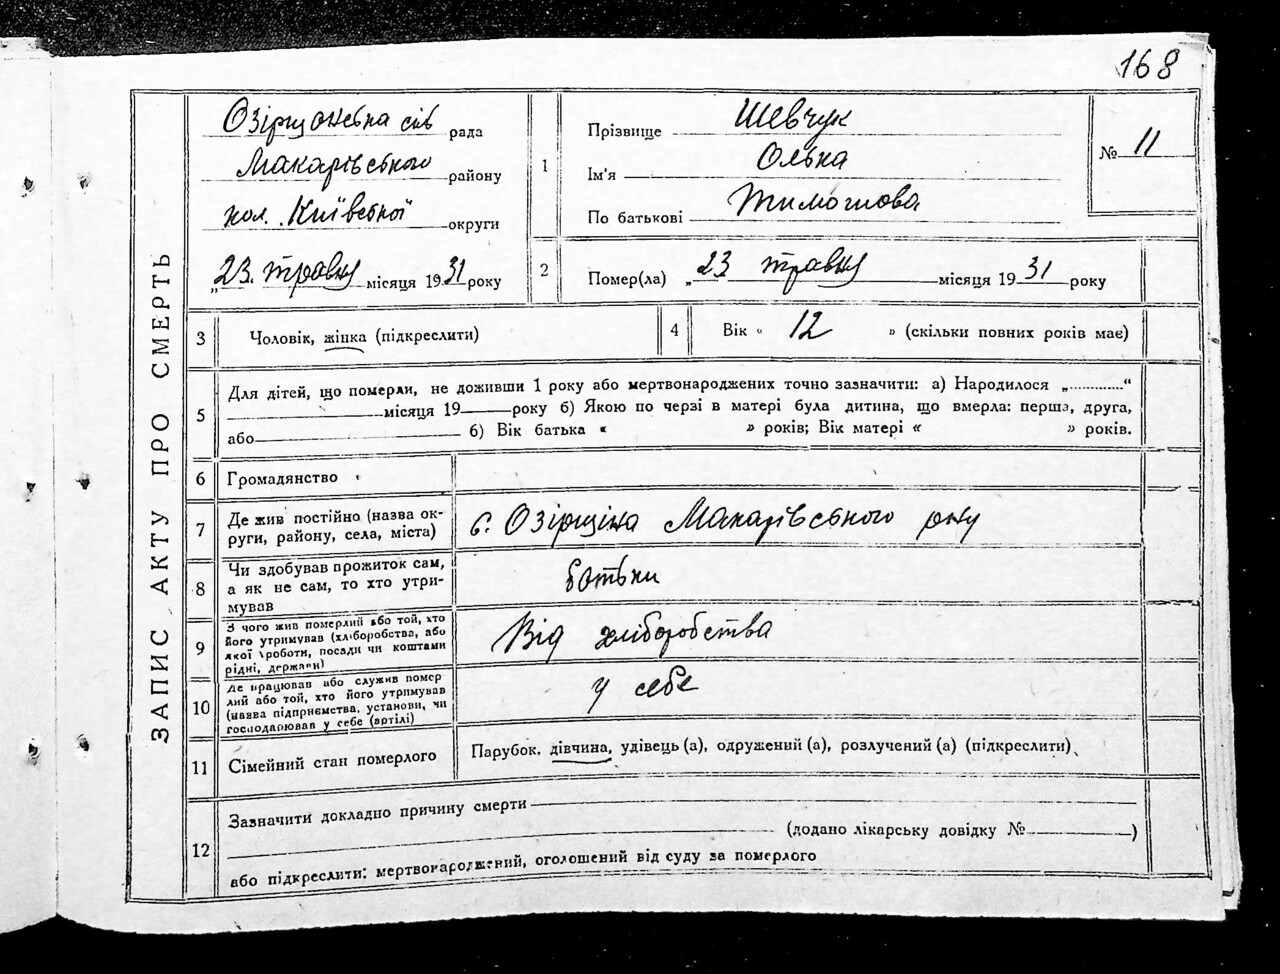 168
ЗАПИС АКТУ ПРО СМЕРТЬ
Озірщанська сіль рада
Макарівського району
кол. Київської округи
„23. травня місяця 1931 року
1
Прізвище Шевчук
Ім'я Олька
По батькові Тимошова
№ 11
2
Помер(ла) „23 травня місяця 1931 року
3 Чоловік, жінка (підкреслити)
4 Вік « 12 » (скільки повних років має)
5 Для дітей, що померли, не доживши 1 року або мертвонароджених точно зазначити: а) Народилося „............“
місяця 19 року б) Якою по черзі в матері була дитина, що вмерла: перша, друга,
або б) Вік батька « » років; Вік матері « » років.
6 Громадянство
7 Де жив постійно (назва ок-
руги, району, села, міста)
с. Озірщина Макарівського р-ну
8 Чи здобував прожиток сам,
а як не сам, то хто утри-
мував
батьки
9 З чого жив померлий або той, хто
його утримував (хліборобства, або
якої роботи, посади чи коштами
рідні, держави)
Від хліборобства
10 Де працював або служив помер
лий або той, хто його утримував
(назва підприємства, установи, чи
господарював у себе (артілі)
у себе
11 Сімейний стан померлого
Парубок, дівчина, удівець (а), одружений (а), розлучений (а) (підкреслити)
12 Зазначити докладно причину смерти
(додано лікарську довідку № )
або підкреслити: мертвонароджений, оголошений від суду за померлого